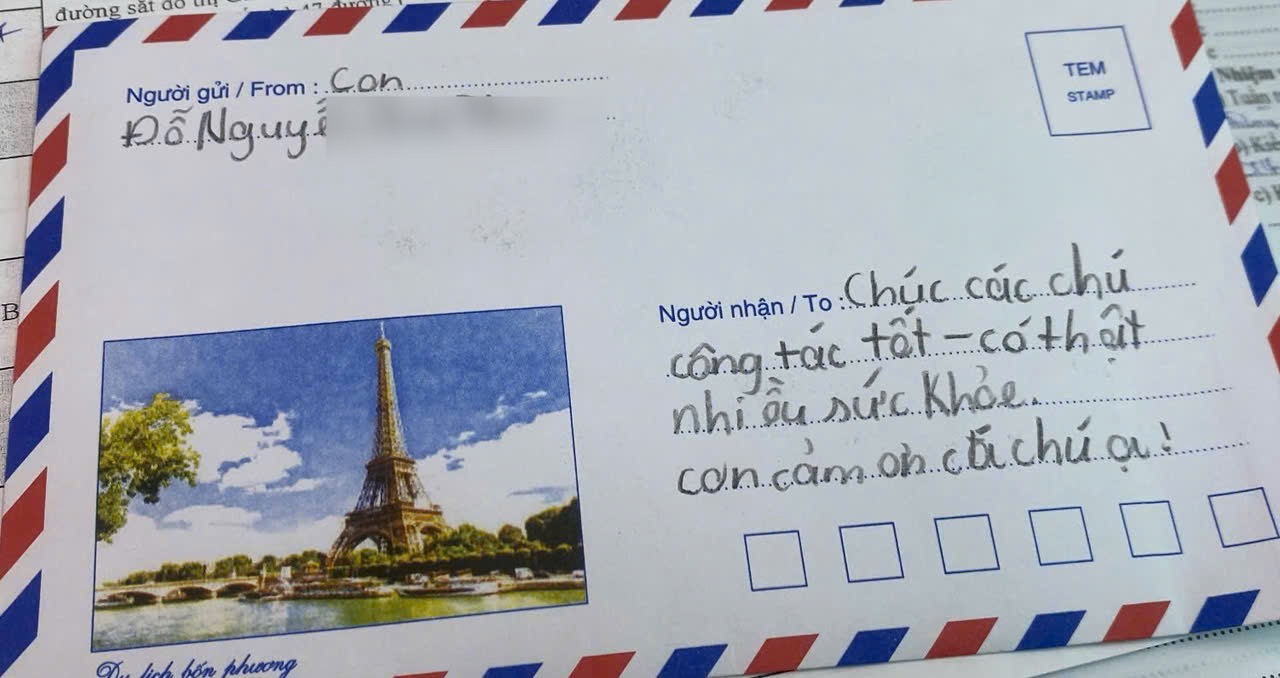 đường sắt đô thị
Người gửi / From : Con
Đỗ Nguyễ
TEM
STAMP
Người nhận / To : Chúc các chú
công tác tốt – có thật
nhiều sức khỏe.
con cảm ơn các chú ạ!
Du lịch bốn phương
B
Nhiệm